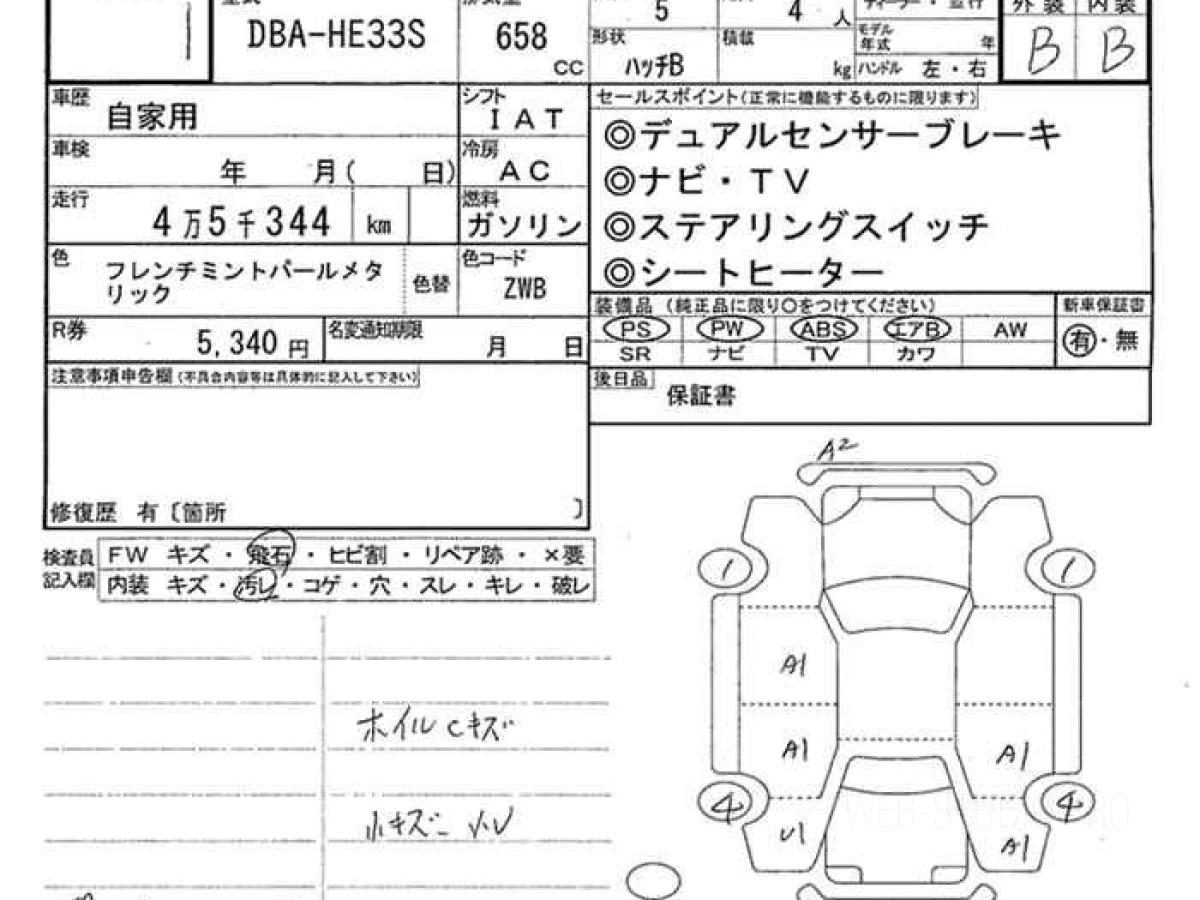 DBA-HE33S
658
CC
5
4
人
形状
ハッチB
積載
kg
モデル年式
年
ハンドル 左・右
外装 内装
B
B
車歴
自家用
シフト
IAT
車検
年 月( 日)
冷房
AC
走行
4万5千344 km
燃料
ガソリン
色
フレンチミントパールメタ
リック
色替
色コード
ZWB
R券
5,340 円
名変通知期限
月 日
セールスポイント(正常に機能するものに限ります)
◎デュアルセンサーブレーキ
◎ナビ・TV
◎ステアリングスイッチ
◎シートヒーター
装備品 (純正品に限り○をつけてください)
新車保証書
PS PW ABS エアB AW
SR ナビ TV カワ
有・無
後日品
保証書
注意事項申告欄(不具合内容等は具体的に記入して下さい)
修復歴 有〔箇所 〕
検査員
記入欄
FW キズ・飛石・ヒビ割・リペア跡・×要
内装 キズ・汚レ・コゲ・穴・スレ・キレ・破レ
ホイルCキズ
小キズ 小U
A2
1
1
A1
A1
A1
4
4
U1
A1